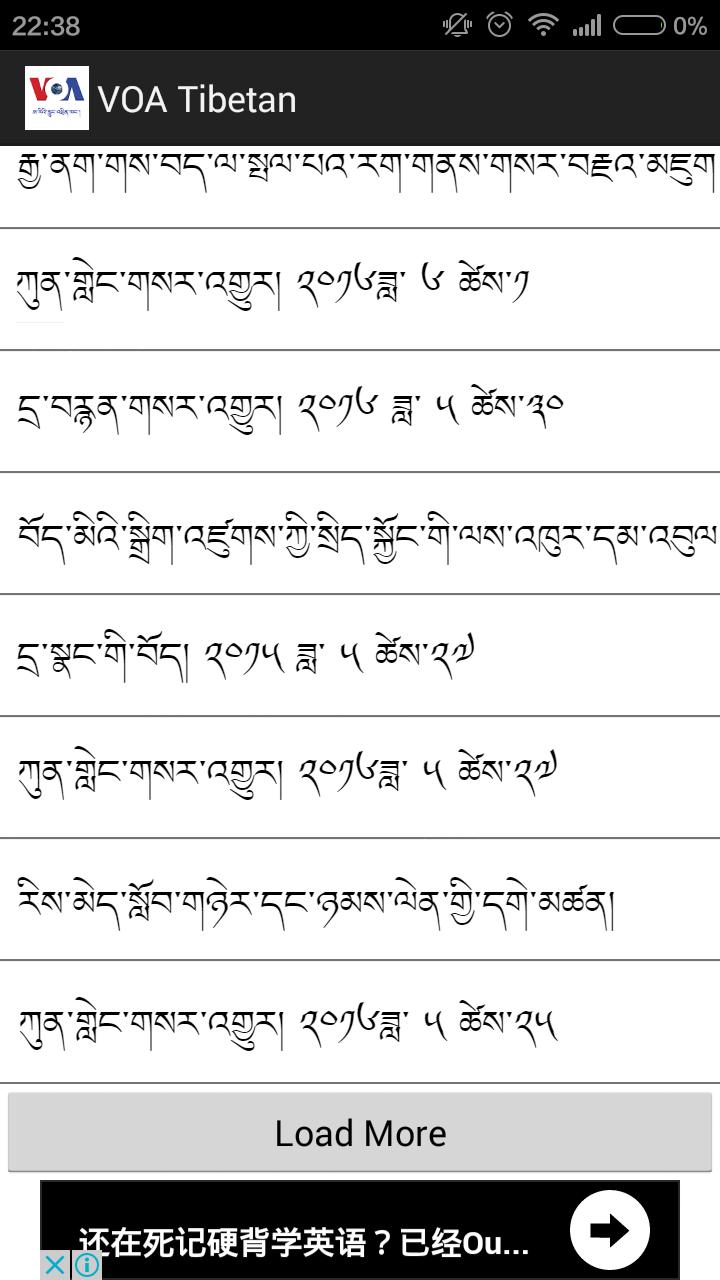 22:38
0%
VOA
VOA Tibetan
རྒྱ་ནག་གས་བོད་ལ་སྤེལ་པའི་རིག་གནས་གསར་བརྗེའི་མཇུག
ཀུན་གླེང་གསར་འགྱུར། ༢༠༡༦ཟླ་ ༦ ཚེས་༡
དྲ་བརྙན་གསར་འགྱུར། ༢༠༡༦ ཟླ་ ༥ ཚེས་༣༠
བོད་མིའི་སྒྲིག་འཛུགས་ཀྱི་སྲིད་སྐྱོང་གི་ལས་འཁུར་དམ་འབུལ
དྲ་སྣང་གི་བོད། ༢༠༡༥ ཟླ་ ༥ ཚེས་༢༧
ཀུན་གླེང་གསར་འགྱུར། ༢༠༡༦ཟླ་ ༥ ཚེས་༢༧
རིས་མེད་སློབ་གཉེར་དང་ཉམས་ལེན་གྱི་དགེ་མཚན།
ཀུན་གླེང་གསར་འགྱུར། ༢༠༡༦ཟླ་ ༥ ཚེས་༢༥
Load More
还在死记硬背学英语？已经Ou...